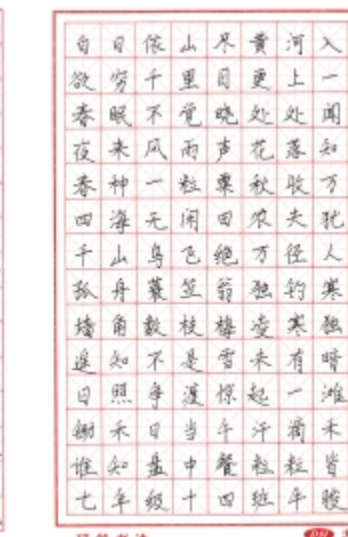 白日依山尽黄河入
欲穷千里目更上一
春眠不觉晓处处闻
夜来风雨声花落知
春种一粒粟秋收万
四海无闲田农夫犹
千山鸟飞绝万径人
孤舟蓑笠翁独钓寒
墙角数枝梅凌寒独
遥知不是雪未有暗
日照争渡惊起一滩
锄禾日当午汗滴禾
谁知盘中餐粒粒皆
七年级十四班年骏